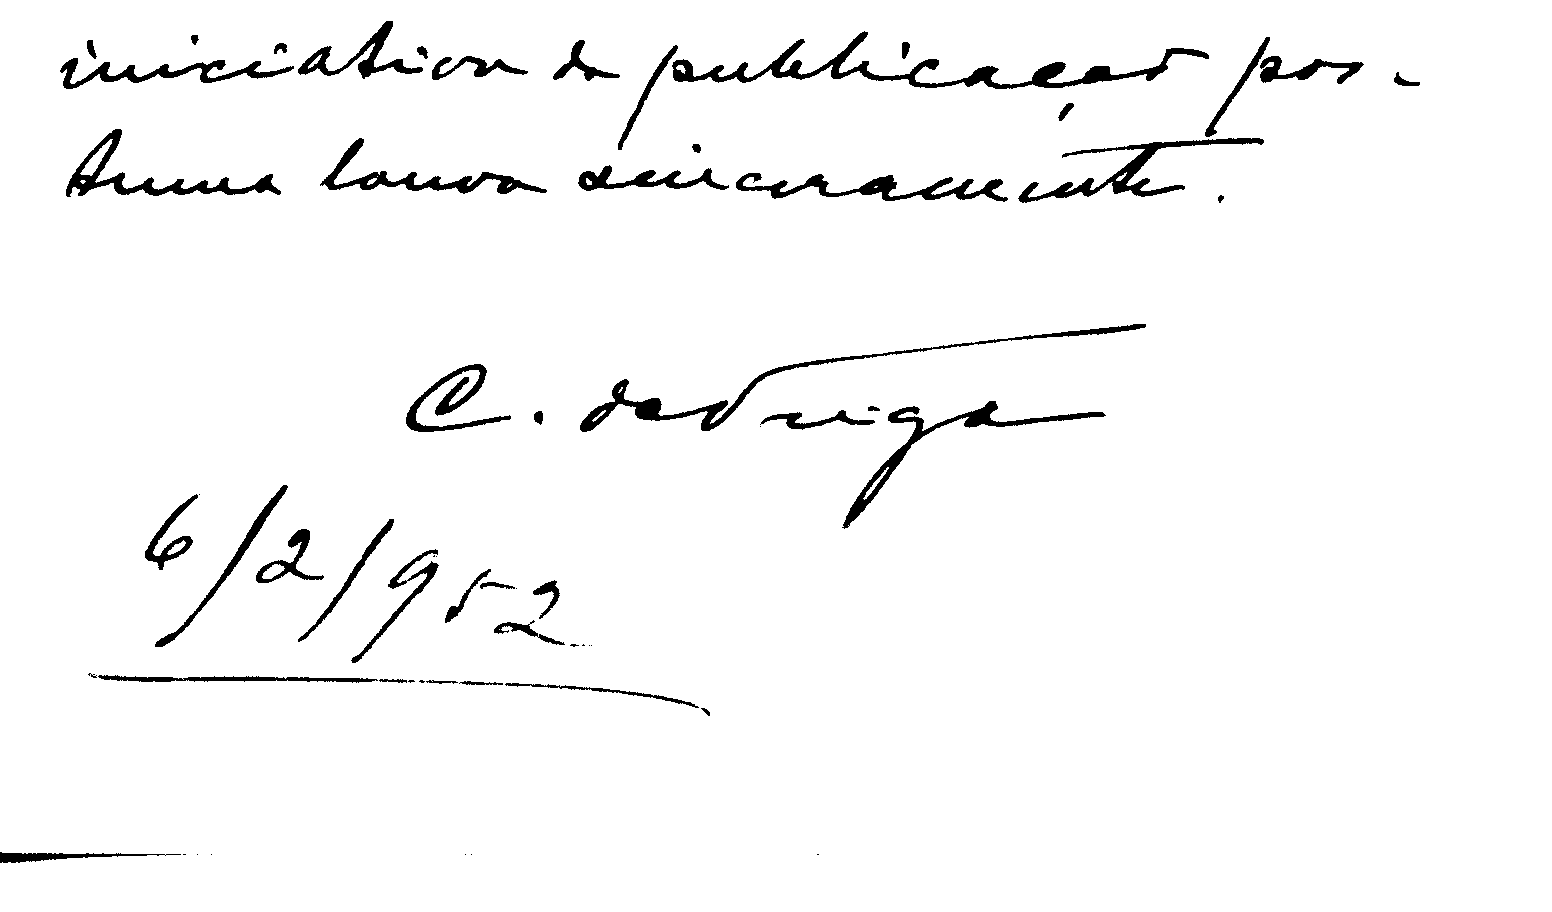 iniciativa da publicação pos-
tuma louva sinceramente.
C. da Veiga
6/2/952